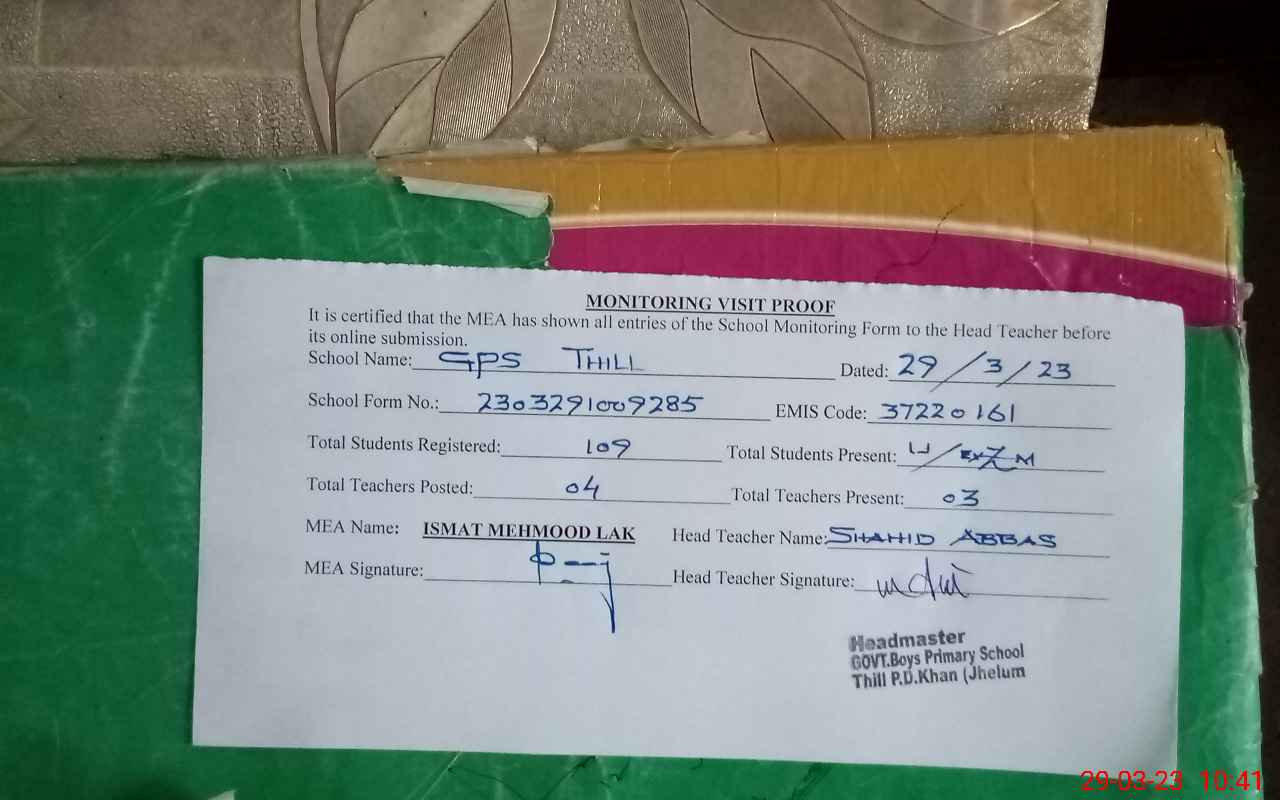 MONITORING VISIT PROOF
It is certified that the MEA has shown all entries of the School Monitoring Form to the Head Teacher before
its online submission.
School Name: GPS THILL Dated: 29/3/23
School Form No.: 2303291009285 EMIS Code: 37220161
Total Students Registered: 109 Total Students Present:
Total Teachers Posted: 04 Total Teachers Present: 03
MEA Name: ISMAT MEHMOOD LAK Head Teacher Name: SHAHID ABBAS
MEA Signature: Head Teacher Signature:
Headmaster
GOVT.Boys Primary School
Thill P.D.Khan (Jhelum
29-03-23 10:41